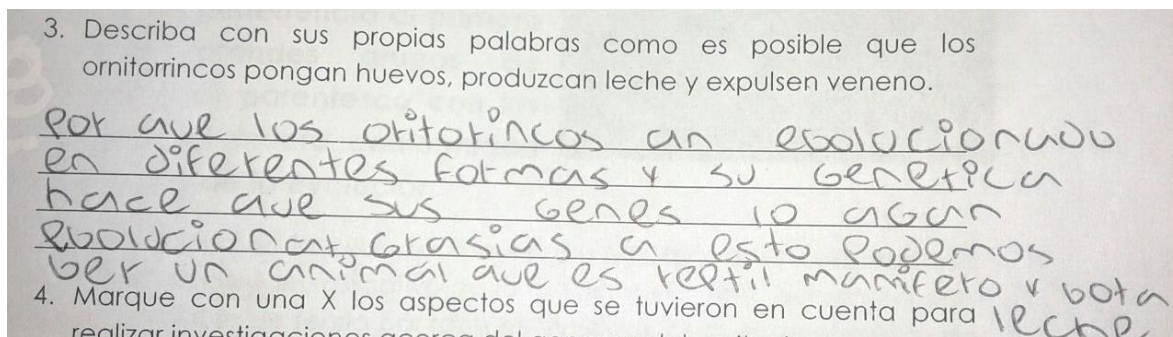 3. Describa con sus propias palabras como es posible que los
ornitorrincos pongan huevos, produzcan leche y expulsen veneno.
Por que los oritorincos an evolucionado
en diferentes formas y su genetica
hace que sus genes lo agan
evolucionar grasias a esto podemos
ber un animal que es reptil mamifero y bota
leche
4. Marque con una X los aspectos que se tuvieron en cuenta para
realizar investigaciones acerca del